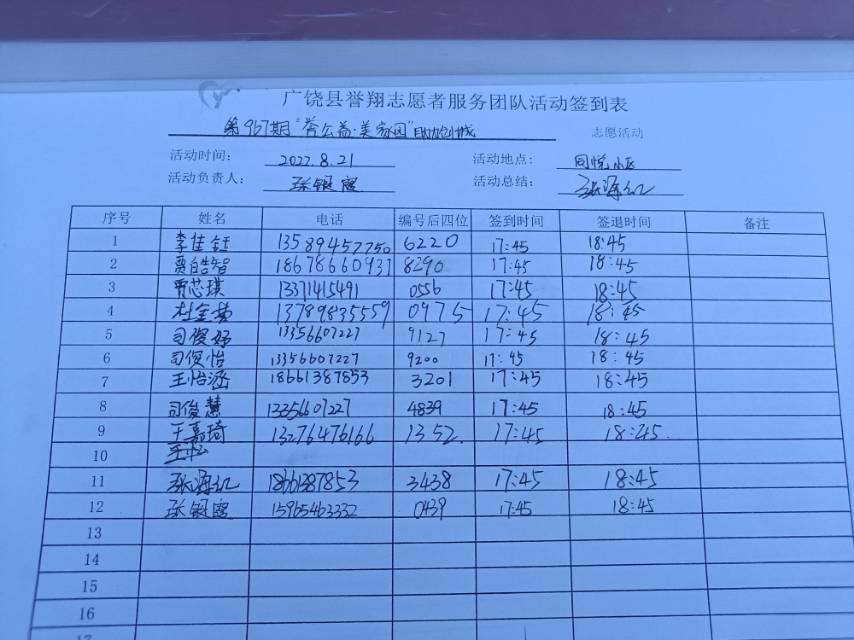 广饶县誉翔志愿者服务团队活动签到表
第967期"誉公益·美家园"助力创城 志愿活动
活动时间: 2022.8.21 活动地点: 同悦小区
活动负责人: 张银霞 活动总结: 张海红
序号 姓名 电话 编号后四位 签到时间 签退时间 备注
1 李佳钰 13589457750 6220 17:45 18:45
2 贾皓智 18678660937 8290 17:45 18:45
3 贾芯琪 13371415491 0556 17:45 18:45
4 杜金 13789835559 0975 17:45 18:45
5 司俊妤 13356607227 9127 17:45 18:45
6 司俣怡 13356607227 9200 17:45 18:45
7 王怡涵 18661387853 3201 17:45 18:45
8 司俊慧 13356607227 4839 17:45 18:45
9 王嘉琦 13276476166 1352. 17:45 18:45.
10 王
11 张海红 18661387853 3438 17:45 18:45
12 张银霞 15965463332 0439 17:45 18:45
13
14
15
16
17